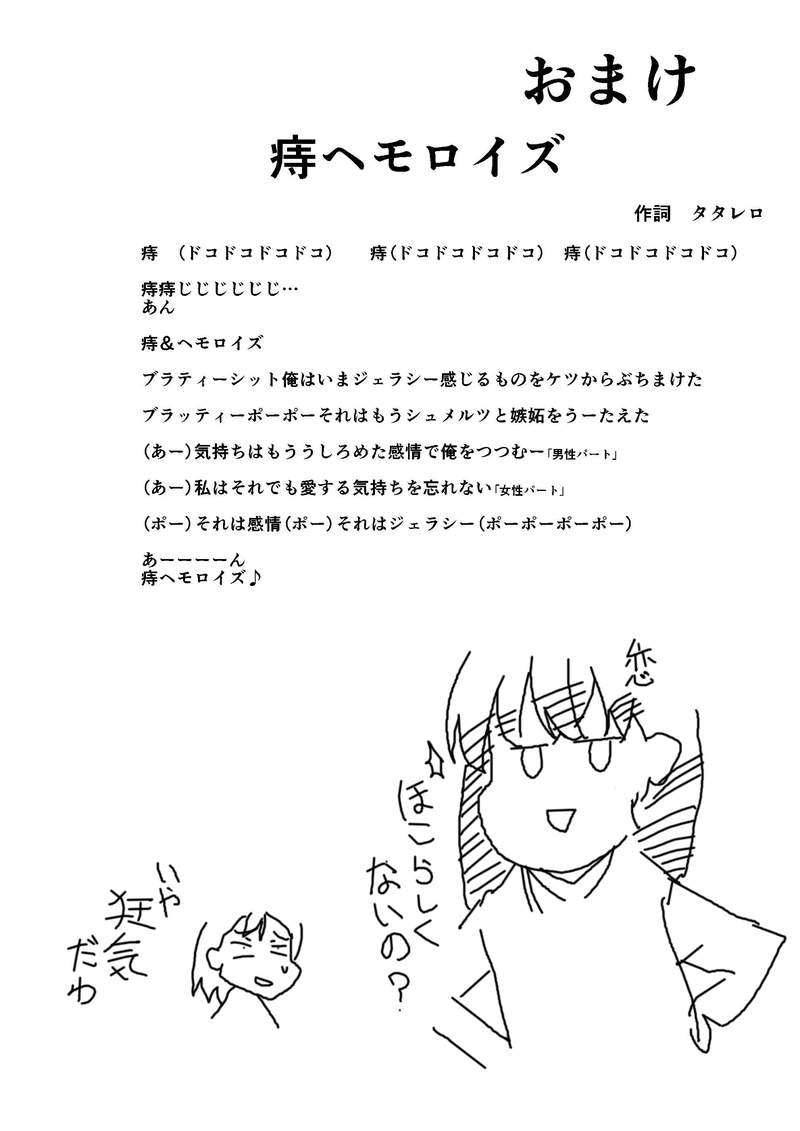 おまけ
痔ヘモロイズ
作詞　タタレロ
痔　（ドコドコドコドコ）　　痔（ドコドコドコドコ）　痔（ドコドコドコドコ）
痔痔じじじじじじ…
あん
痔＆ヘモロイズ
ブラティーシット俺はいまジェラシー感じるものをケツからぶちまけた
ブラッティーポーポーそれはもうシュメルツと嫉妬をうーたえた
（あー）気持ちはもううしろめた感情で俺をつつむー「男性パート」
（あー）私はそれでも愛する気持ちを忘れない「女性パート」
（ポー）それは感情（ポー）それはジェラシー（ポーポーポーポー）
あーーーーん
痔ヘモロイズ♪
恋
ほこらしく
ないの？
いや
狂気
だゎ